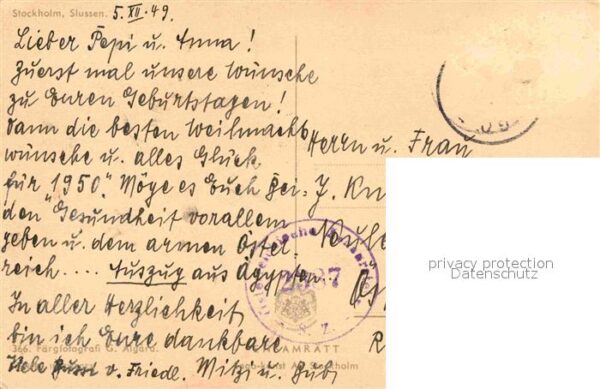 Stockholm, Slussen. 5. XII. 49.
Lieber Pepi u. Anna!
Zuerst mal unsere Wünsche
zu Euren Geburtstagen!
Dann die besten Weihnachts
wünsche u. alles Glück
für "1950". Möge es Euch Bei-
den "Gesundheit vorallem
geben u. dem armen Öster-
reich.... Auszug aus Ägypten.
In aller Herzlichkeit
bin ich Eure dankbare
v. Friedl. Mitzi u.
Herrn u. Frau
J.
2337
366. Färgfotografi G.
ULTRAMRATT
Stockholm
privacy protection
Datenschutz